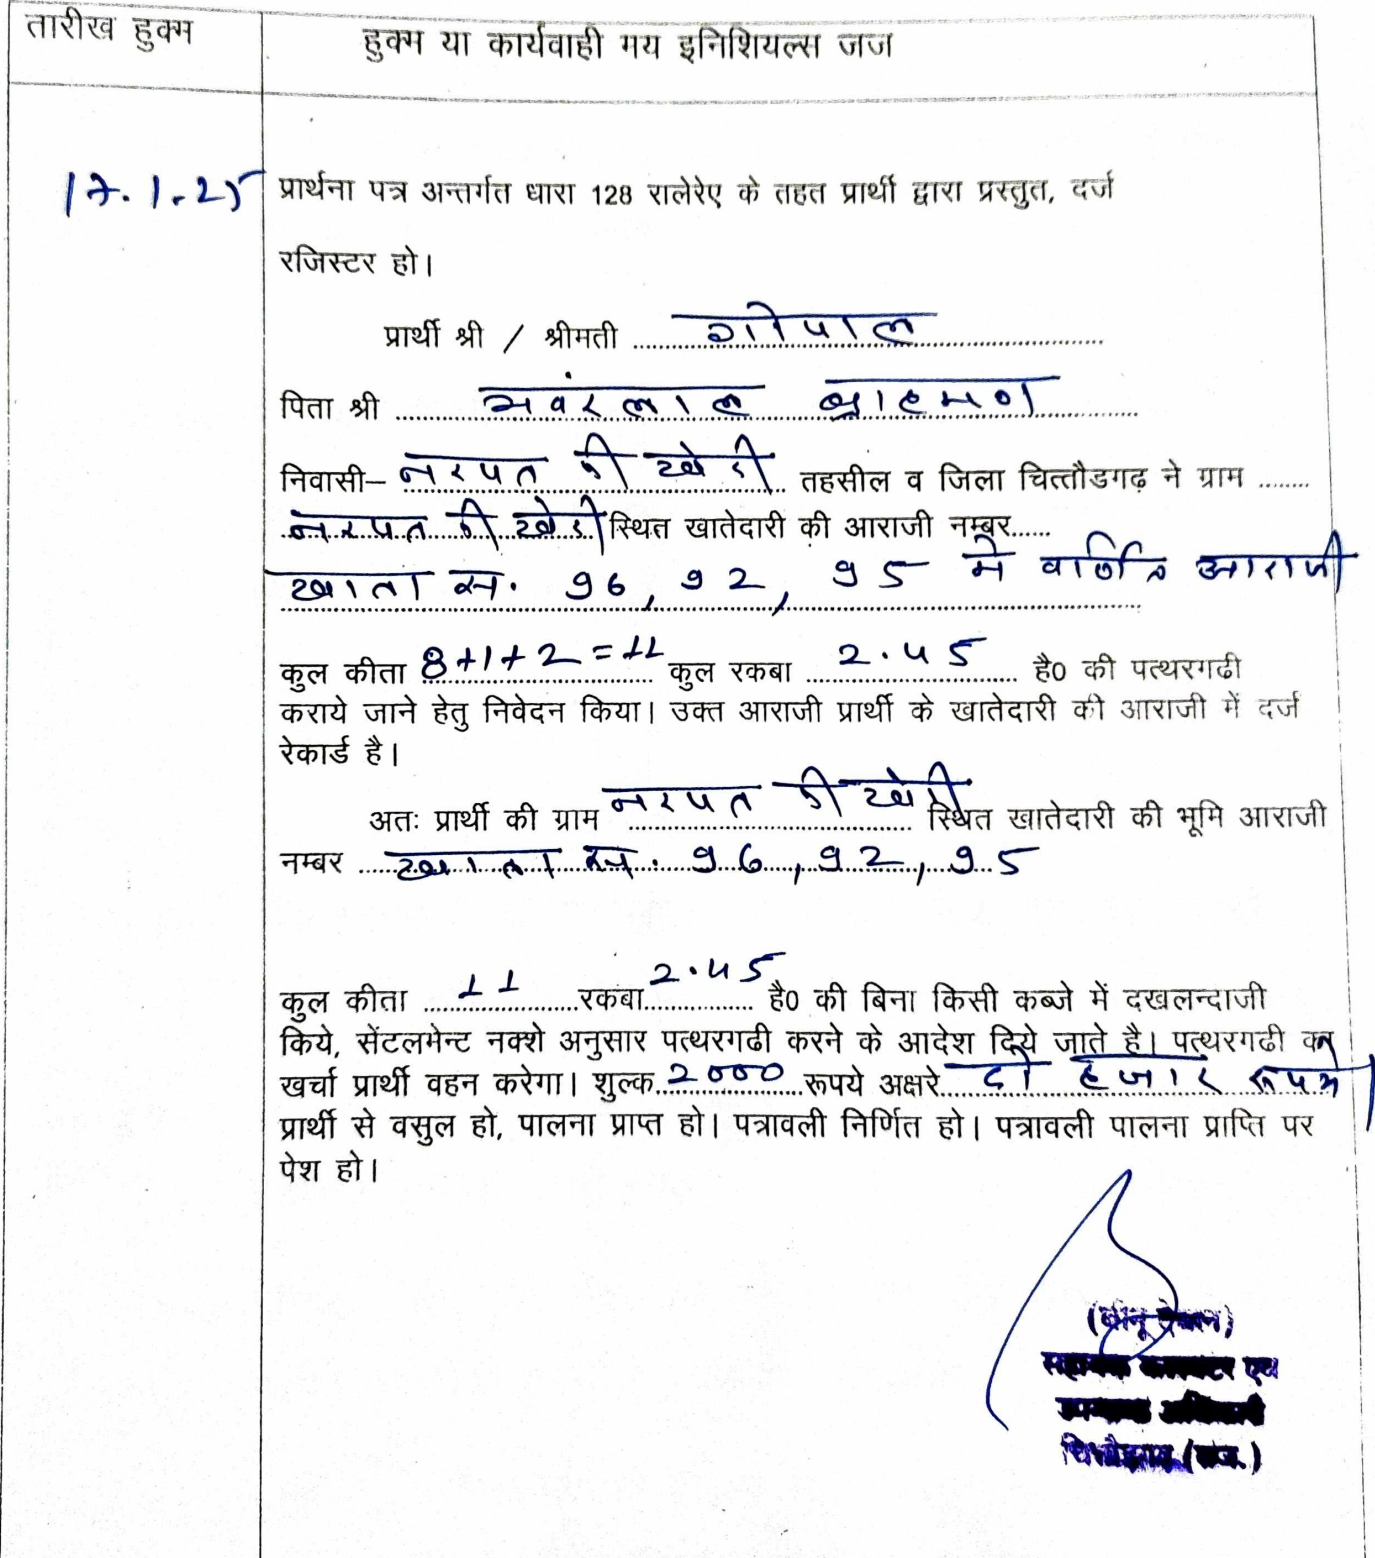 तारीख हुक्म
हुक्म या कार्यवाही मय इनिशियल्स जज
17.1.25
प्रार्थना पत्र अन्तर्गत धारा 128 रालेरेए के तहत प्रार्थी द्वारा प्रस्तुत, दर्ज
रजिस्टर हो।
प्रार्थी श्री / श्रीमती ....गोपाल....
पिता श्री ....भवंरलाल ब्राहमण....
निवासी– नरपत की खेडी तहसील व जिला चित्तौडगढ़ ने ग्राम ........
नरपत की खेडी स्थित खातेदारी की आराजी नम्बर......
खाता स. 96, 92, 95 मे वर्णित आराजी
कुल कीता 8+1+2=11 कुल रकबा 2.45 है0 की पत्थरगढी
कराये जाने हेतु निवेदन किया। उक्त आराजी प्रार्थी के खातेदारी की आराजी में दर्ज
रेकार्ड है।
अतः प्रार्थी की ग्राम नरपत की खेडी स्थित खातेदारी की भूमि आराजी
नम्बर खाता स. 96, 92, 95
कुल कीता 11 रकबा 2.45 है0 की बिना किसी कब्जे में दखलन्दाजी
किये, सेंटलमेन्ट नक्शे अनुसार पत्थरगढी करने के आदेश दिये जाते है। पत्थरगढी का
खर्चा प्रार्थी वहन करेगा। शुल्क 2000 रूपये अक्षरे दो हजार रूपये
प्रार्थी से वसुल हो, पालना प्राप्त हो। पत्रावली निर्णित हो। पत्रावली पालना प्राप्ति पर
पेश हो।
सहायक कलक्टर एवं
उपखण्ड अधिकारी
चित्तौड़गढ़ (राज.)